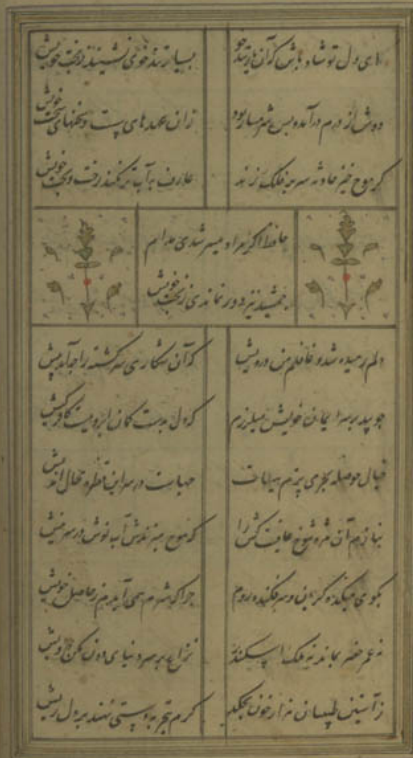 ای دل تو شاد باش که آن یار تندخو
بسیار تندخوی نشیند ز بخت خویش
دوش از برم
زان عهدهای سست و سخنهای سخت خویش
گر موج خیز حادثه سر بر فلک زند
عارف به آب تر نکند رخت و بخت خویش
حافظ اگر مراد میسر شدی مدام
جمشید نیز دور نماندی ز تخت خویش
دلم رمیده شد و غافلم من درویش
که آن شکاری سرگشته را چه آمد پیش
چو بید بر سر ایمان خویش میلرزم
که دل بدست کمان ابروییست کافر کیش
خیال حوصله بحر می پزم هیهات
چهاست در سر این قطره محال اندیش
بنازم آن مژه شوخ عافیت کش را
که موج میزندش آب نوش بر سر نیش
بکوی میکده گریان و سرفکنده روم
چرا که شرم همی آیدم ز حاصل خویش
نه عمر خضر بماند نه ملک اسکندر
نزاع بر سر دنیای دون مکن درویش
ز آستین طبیبان هزار خون بچکد
گرم بتجربه دستی نهند بر دل ریش